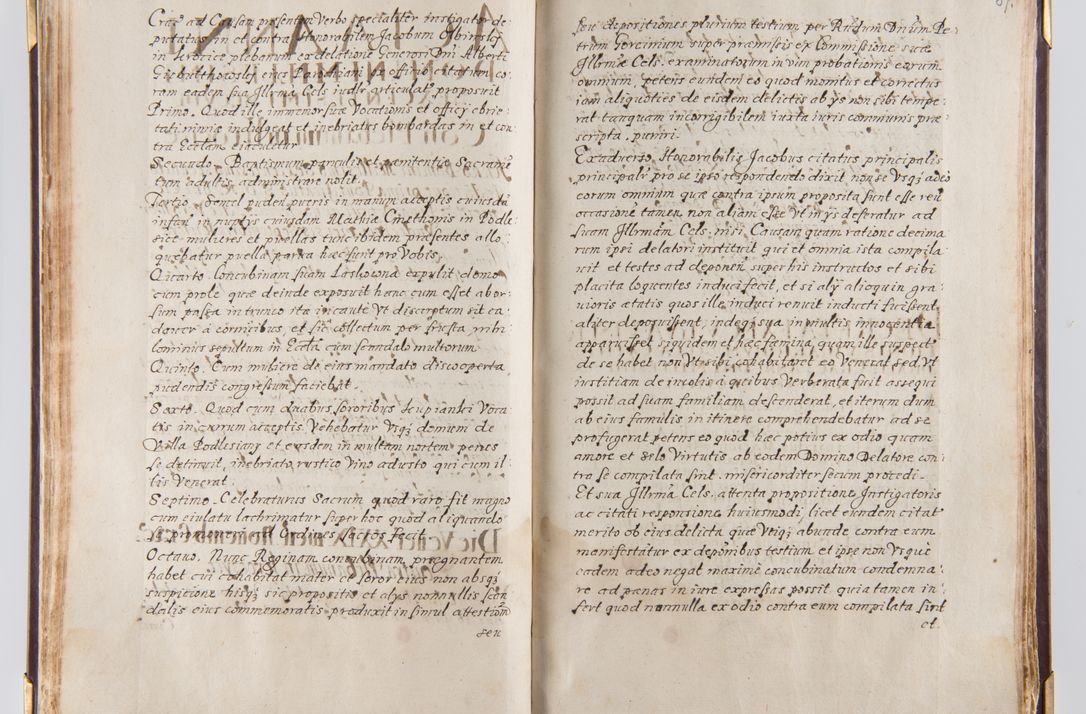 Crac. ad Causam præsentem Verbo specialiter instigator de
putatus, in et contra Honorabilem Jacobum
in plebanum ex delatione Generosi Dni Alberti
eius Parochiani ex officio citatum co
ram eadem sua Illrma Cels iudlr articulat proposuit
Primo. Quod ille immemor suæ Vocationis et officij ebrie
tati nimiæ indulgeat et inebriatus bombardas in et con
tra Eccłam eiaculetur
Secundo. Baptismum parvulis et pænitentiæ Sacramē
tum adultis administrare nolit.
Tertio. Semel pudendū pueris in manum acceptis cuiusdā
infan in nuptijs cuiusdam Mathiæ Cmethonis in Podle
sice mulieres et puellas tunc ibidem præsentes allo
quebatur puella parva hæc sunt pro Vobis
Quarto Concubinam suam Laskowna expulit domo
cum prole quæ deinde exposuit hanc cum esset abor
sum passa in trunco ita incaute Vt discerptum sit ca
daver à cornicibus, et sic collectum per frusta nihi
lominus sepultum in Eccła cum scandalo multorum
Quinto. Cum muliere de eius mandato discooperta
pudendis congressum faciebat.
Sexto. Quod cum duabus sororibus Voca
tis in currum acceptis Vehebatur Vsq; domum de
Villa Podlesiany et easdem in multam noctem penes
se detinuit, inebriato rustico Vino adusto qui cum il
lis Venerat
Septimo. Celebraturus Sacrum quod raro fit magno
cum eiulatu lachrimatur super hoc quod aliquando
se promoveri ad Ordines sacros fecit.
Octavo. Nunc Reginam concubinam prægnantem
habet cui cohabitat mater et soror eius non absq;
suspicione hisq; sic propositis et alys nonnullis scan
dalis eius commemoratis produxit in simul attestaōm
seu
seu depositiones plurium testium per Rndum Dnum Pe
trum Gorcinium super præmissis ex Commissione suæ
Illrmæ Cels. examinatorum in vim probationis eorum
omnium, petijs eundem eo quod monitus et correctus
iam aliquoties de eisdem delictis ab ys non sibi tempe
rat tanquam incorrigibilem iuxta iuris communis præ
scripta. puniri.
Ex adverso Honorabilis Jacobus citatus principalis
principali pro se ipso respondendo dixit non se Vsq; adeo
eorum omnium quæ contra ipsum proposita sunt esse reū
occasione tamen non aliam esse Vt in ys deferatur ad
suam Illrmam Cels. nisi Causam quam ratione decima
rum ipsi delatori instituit qui et omnia ista compila
uit et testes ad deponenˉ super his instructos et sibi
placita loquentes induci fecit, et si alij alioquin gra
uioris ætatis quos ille induci renuit inducti fuissent
aliter deposuissent, indeq; sua in multis innocentia
apparuisset siquidem et hæc fæmina quam ille suspect
de se habet non Vt sibi cohabitaret eo Venerat sed Vt
iustitiam de incolis à quibus Verberata fuit assequi
possit ad suam familiam descenderat, et iterum dum
ab eius famulis in itinere comprehendebatur ad se
profugerat petens eo quod hæc potius ex odio quam
amore et zelo Virtutis ab eodem Domino Delatore con
tra se compilata sint. misericorditer secum procedi.
Et sua Illrma Cels. attenta propositione Instigatoris
ac citati responsione huiusmodi, licet eundem citat
merito ob eius delicta quæ Vtiq; abunde contra eum
manifestatur ex deponibus testium et ipse non Vsque
eadem adeo negat maxime concubinatum condemna
re ad pænas in iure expressas possit. quia tamen in
fert quod nonnulla ex odio contra eum compilata sint
et.